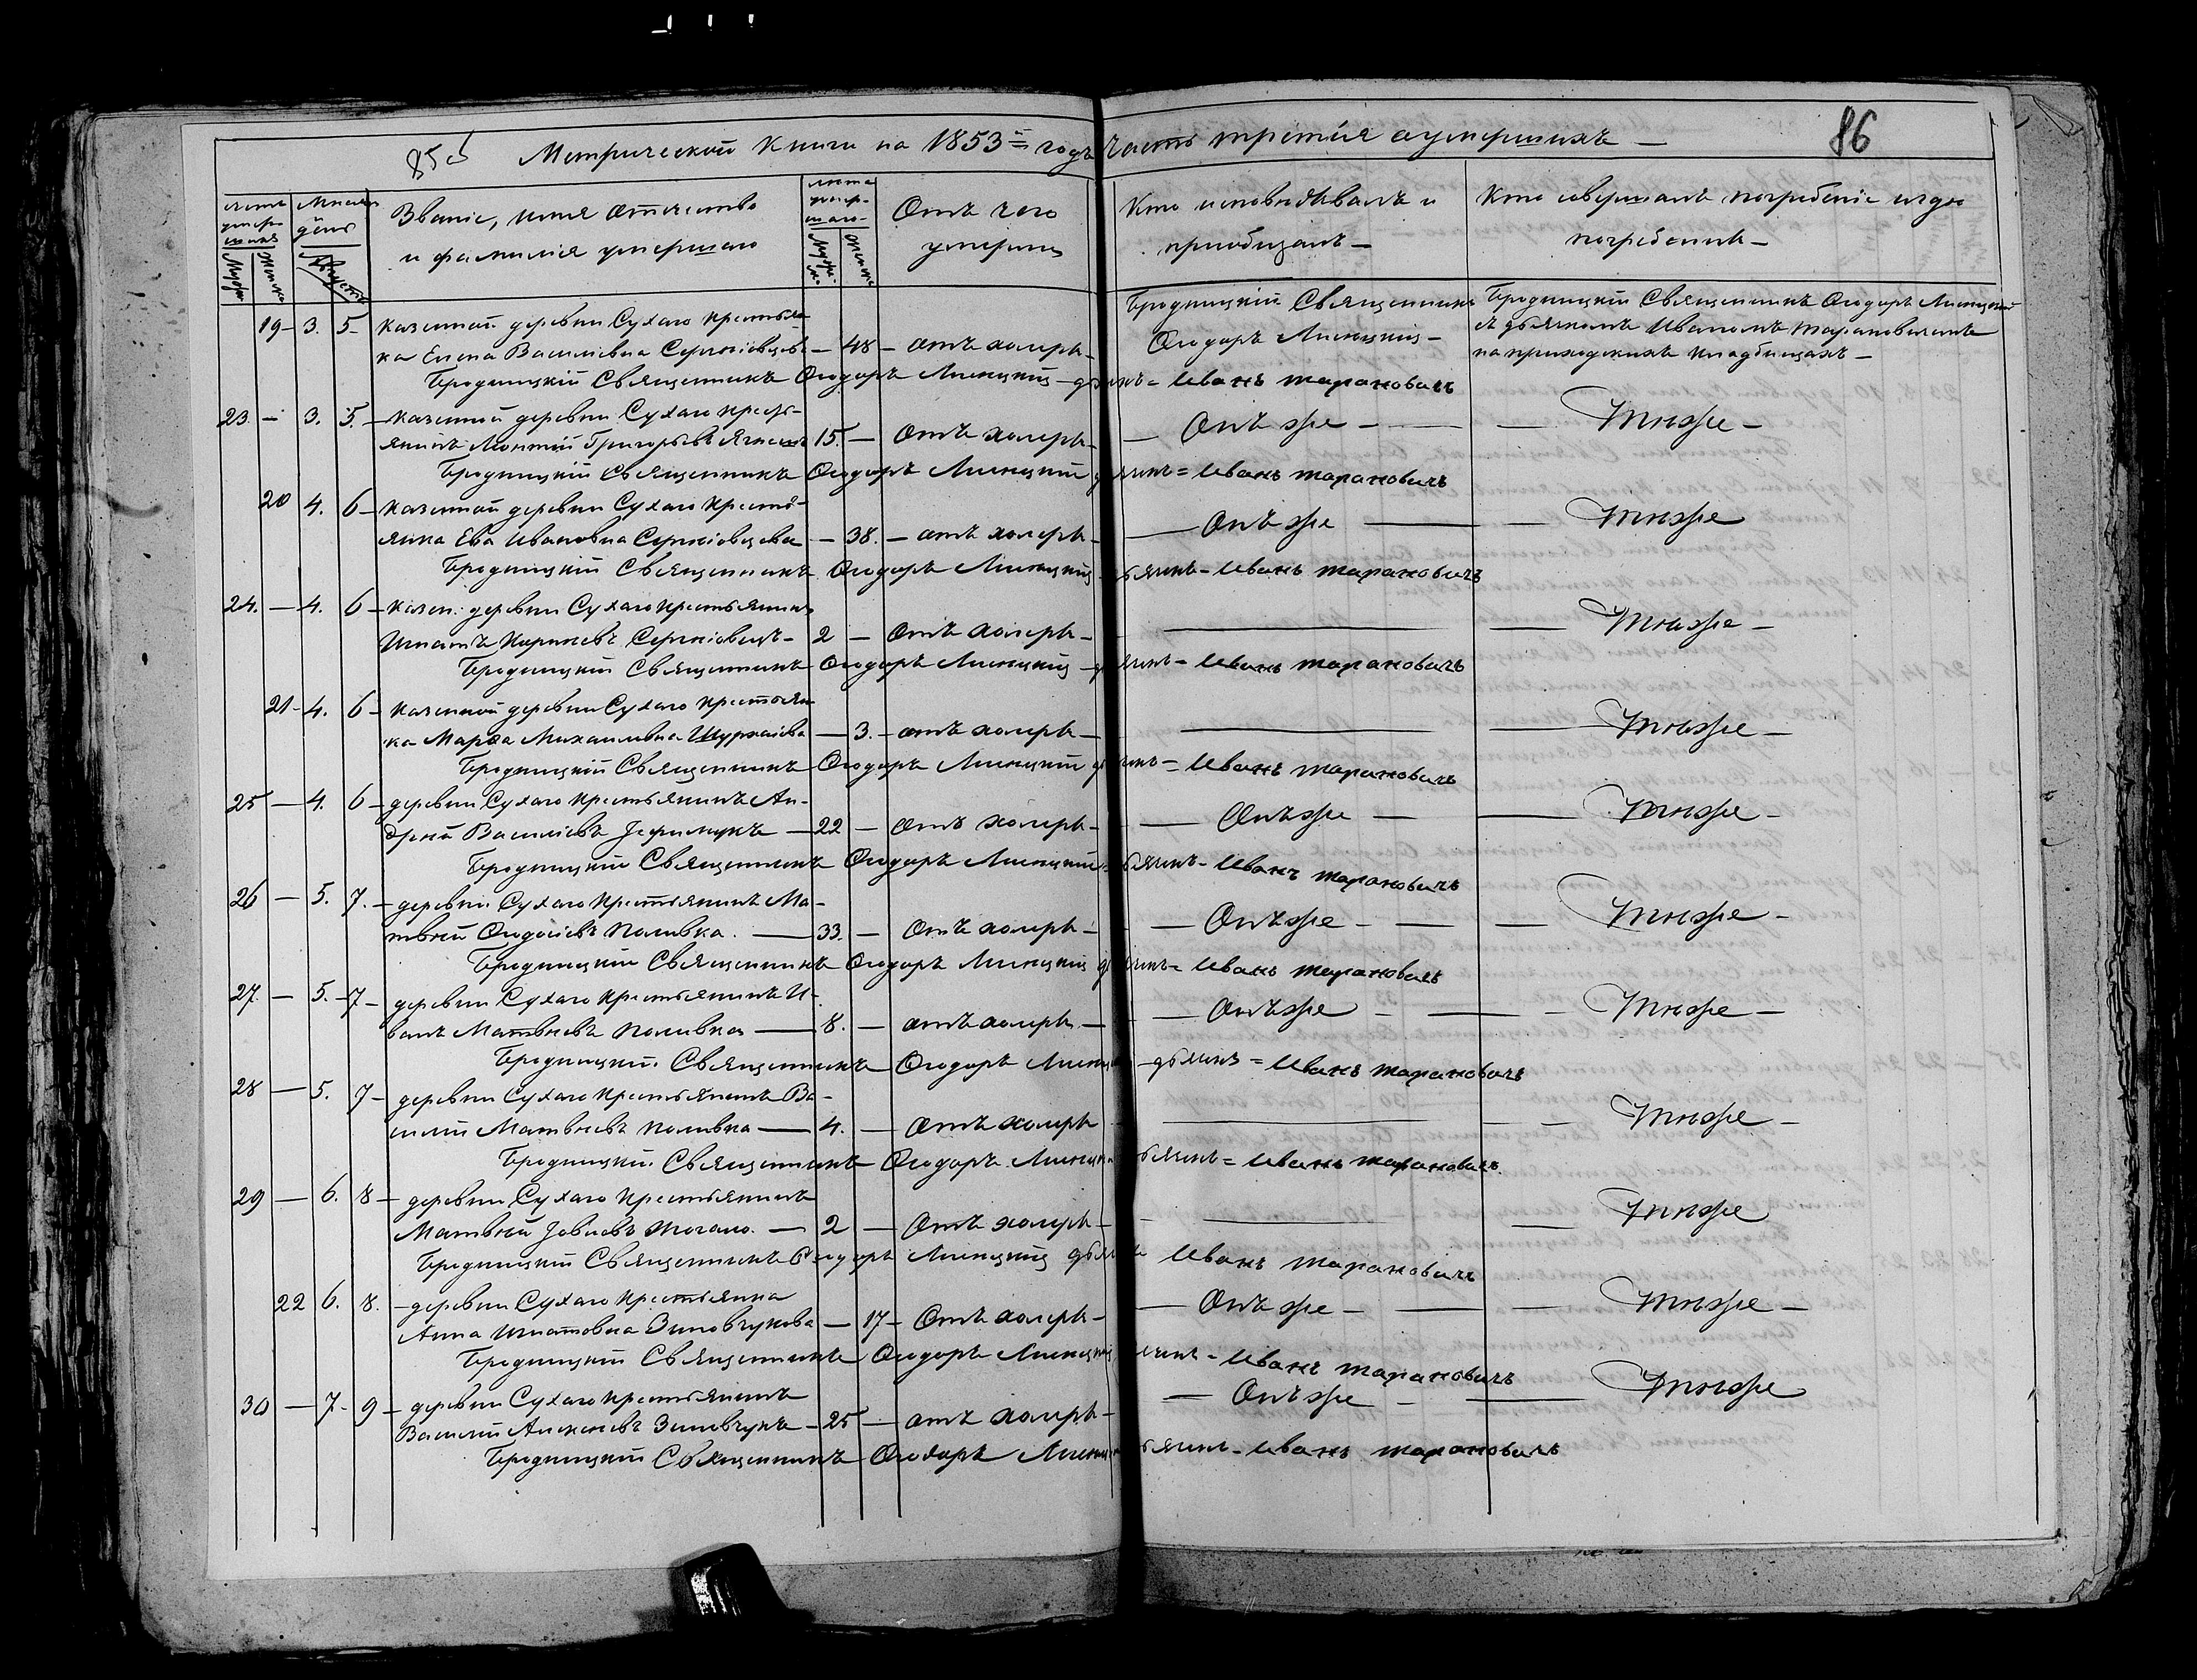 85об Метрической книги на 1853й годъ часть третія о умершихъ 86
счетъ умершихъ
Мужеск.
Женска
Мѣсяцъ день
Августъ
Званіе, имя отчество
и фамилія умершаго
лѣта умершаго
Мужеска
Женска
Отъ чего
умерли
Кто исповѣдывалъ и
пріобщалъ
Кто совершалъ погребеніе и гдѣ
погребенны
19 - 3. 5 - казенной деревни Сухаго крестьян-
ка Елена Василіевна - 48 - отъ холеры -
Бродницкій Священникъ
Ѳеодоръ Лисицкій -
Бродницкій Священникъ Ѳеодоръ Лисицкій
съ дьячкомъ Иваномъ Тарановичемъ
на приходскихъ кладбищахъ -
Бродницкій Священникъ Ѳеодоръ Лисицкій - дьячекъ = Иванъ Тарановичъ
23 - 3. 5. - казенной деревни Сухаго кресть-
янинъ Григорьевъ 15. - Отъ холеры - Онъ же - Тѣже -
Бродницкій Священникъ Ѳеодоръ Лисицкій дьячекъ = Иванъ Тарановичъ
20 4. 6 - казенной деревни Сухаго кресть-
янка Ева Ивановна - 38. - отъ холеры - Онъ же - Тѣже
Бродницкій Священникъ Ѳеодоръ Лисицкій дьячекъ - Иванъ Тарановичъ
24. - 4. 6 - казен: деревни Сухаго крестьянинъ
Игнатъ - 2 - Отъ холеры - Тѣже -
Бродницкій Священникъ Ѳеодоръ Лисицкій - дьячекъ - Иванъ Тарановичъ
21 - 4. 6 - казенной деревни Сухаго крестьян-
ка Марѳа Михаиловна - 3. - отъ холеры - Тѣже -
Бродницкій Священникъ Ѳеодоръ Лисицкій дьячекъ = Иванъ Тарановичъ
25 - 4. 6 - деревни Сухаго крестьянинъ Ан-
дрей Василіевъ - 22 - Отъ холеры - Онъ же - Тѣже -
Бродницкій Священникъ Ѳеодоръ Лисицкій дьячекъ - Иванъ Тарановичъ
26 - 5. 7. - деревни Сухаго крестьянинъ Ма-
твѣй Поливка. - 33. - Отъ холеры - Онъ же - Тѣже -
Бродницкій Священникъ Ѳеодоръ Лисицкій дьячекъ = Иванъ Тарановичъ
27. - 5. - 7 - деревни Сухаго крестьянинъ И-
ванъ Матвѣевъ Поливка - 8. - отъ холеры - Онъ же - Тѣже -
Бродницкій Священникъ Ѳеодоръ Лисицкій - дьячекъ = Иванъ Тарановичъ
28 - 5. 7 - деревни Сухаго крестьянинъ Ва-
силій Матвѣевъ Поливка - 4. - Отъ холеры - Тѣже -
Бродницкій Священникъ Ѳеодоръ Лисицкій дьячекъ = Иванъ Тарановичъ.
29 - 6. 8 - деревни Сухаго крестьянинъ
Матвѣй - 2 - Отъ холеры - Тѣже
Бродницкій Священникъ Ѳеодоръ Лисицкій дьячекъ Иванъ Тарановичъ
22 6. 8. - деревни Сухаго крестьянка
Анна Игнатовна Зиновчукова - 17 - Отъ холеры - Онъ же - Тѣже -
Бродницкій Священникъ Ѳеодоръ Лисицкій дьячекъ - Иванъ Тарановичъ
30 - 7 - 9 - деревни Сухаго крестьянинъ
Василій Алексѣевъ Зиновчукъ - 25 - отъ холеры - Онъ же - Тѣже
Бродницкій Священникъ Ѳеодоръ Лисицкій дьячекъ - Иванъ Тарановичъ